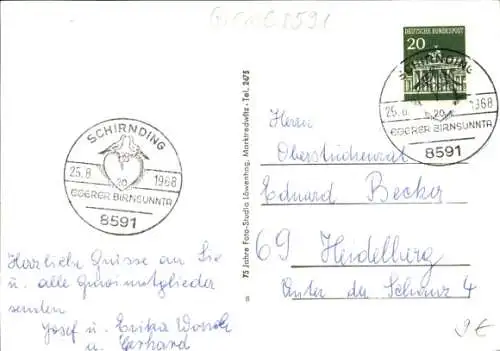 8591
DEUTSCHE BUNDESPOST
20
SCHIRNDING
25.8. 1968
20
EGERER BIRNSUNNTA
8591
SCHIRNDING
25.8. 1968
20
EGERER BIRNSUNNTA
8591
75 Jahre Foto-Studio Löwenhag, Marktredwitz · Tel. 2475
Herrn
Oberstudienrat
Eduard Becker
69 Heidelberg
Unter der Schanz 4
Herzliche Grüsse an Sie
u. alle
senden
Josef u. Erika
u. Gerhard
9€